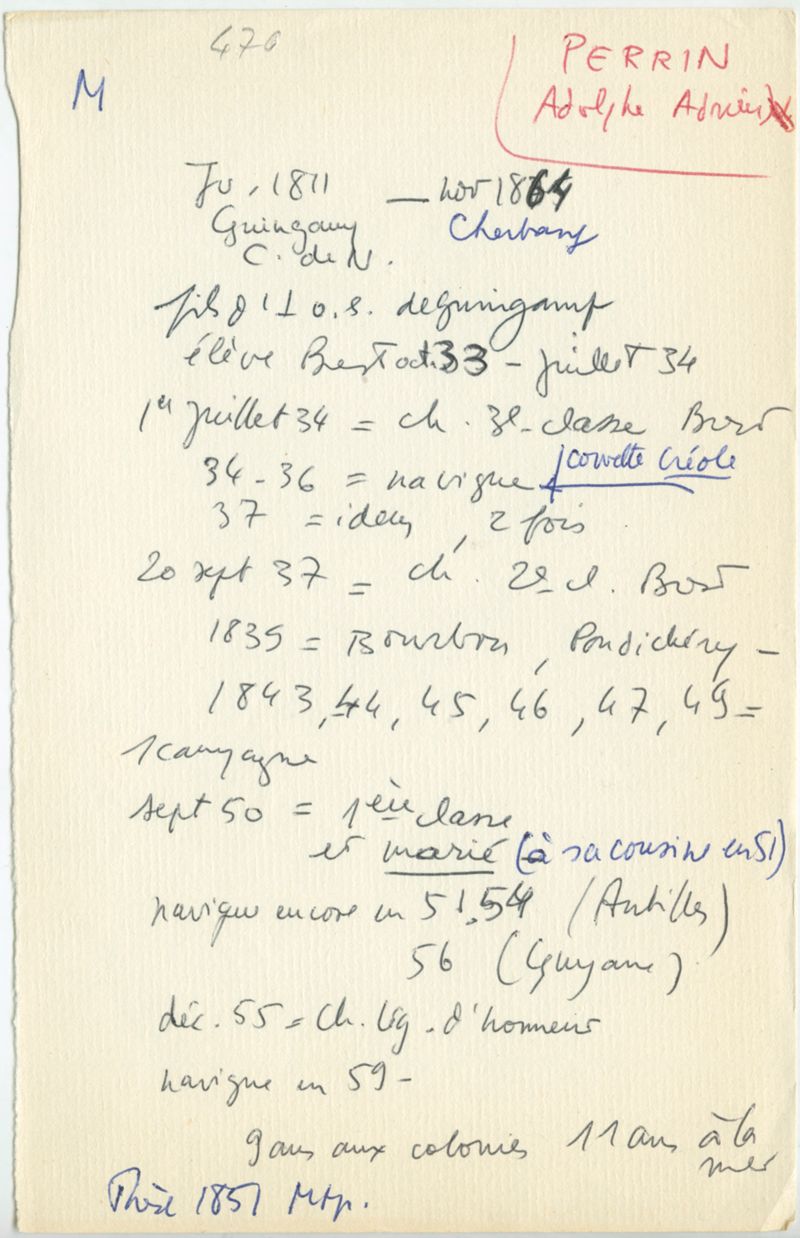 470
M
PERRIN
Adolphe Adrien
1811 — nov 1864
Guingamp Cherbourg
C. de N.
fils d'1 o.s. de Guingamp
élève Brest oct. 33 - juillet 34
1er juillet 34 = ch. 3e classe Brest
34-36 = navigue corvette Créole
37 = idem, 2 fois
20 sept 37 = ch. 2e cl. Brest
1839 = Bourbon, Pondichéry -
1843, 44, 45, 46, 47, 49 =
1 campagne
sept 50 = 1ère classe
et marié (à sa cousine en 51)
navigue encore en 51, 54 (Antilles)
56 (Guyane)
déc. 55 = Ch. Lég. d'honneur
navigue en 59 -
9 ans aux colonies 11 ans à la
mer
Thèse 1851 Mtp.